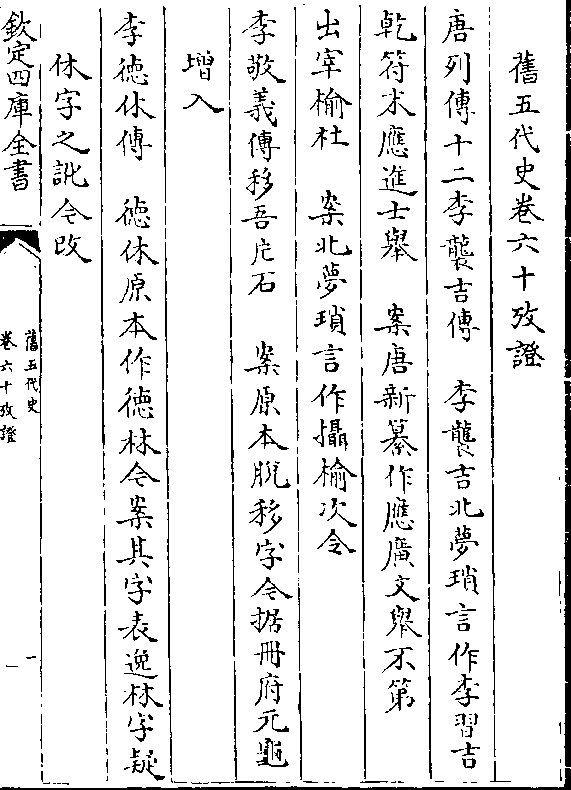 舊五代史卷六十攷證
唐列傳十二李襲吉傳　李襲吉北夢瑣言作李習吉
乾符末應進士舉　案唐新纂作應廣文舉不第
出宰榆社　案北夢瑣言作攝榆次令
李敬義傳移吾片石　案原本脫移字今据冊府元龜
增入
李德休傳　德休原本作德林今案其字表逸林字疑
休字之訛今改
欽定四庫全書
舊五代史
卷六十攷證
一